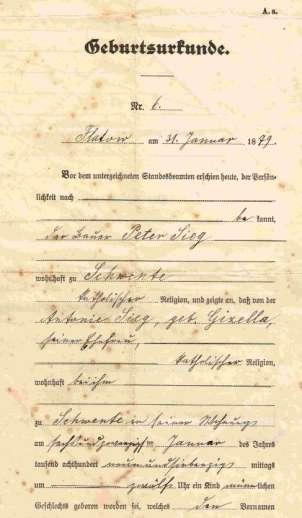 A. a.
Geburtsurkunde.
Nr. 6.
Flatow am 31. Januar 1879.
Vor dem unterzeichneten Standesbeamten erschien heute, der Persön-
lichkeit nach
be kannt,
der Bauer Peter Sieg
wohnhaft zu Schwente
katholischer Religion, und zeigte an, daß von der
Antonie Sieg, geb. Gizella,
seiner Ehefrau,
katholischer Religion,
wohnhaft bei ihm
zu Schwente in seiner Wohnung
am sechsundzwanzigsten Januar des Jahres
tausend achthundert neunundsiebenzig mittags
um zwölf Uhr ein Kind männlichen
Geschlechts geboren worden sei, welches den Vornamen